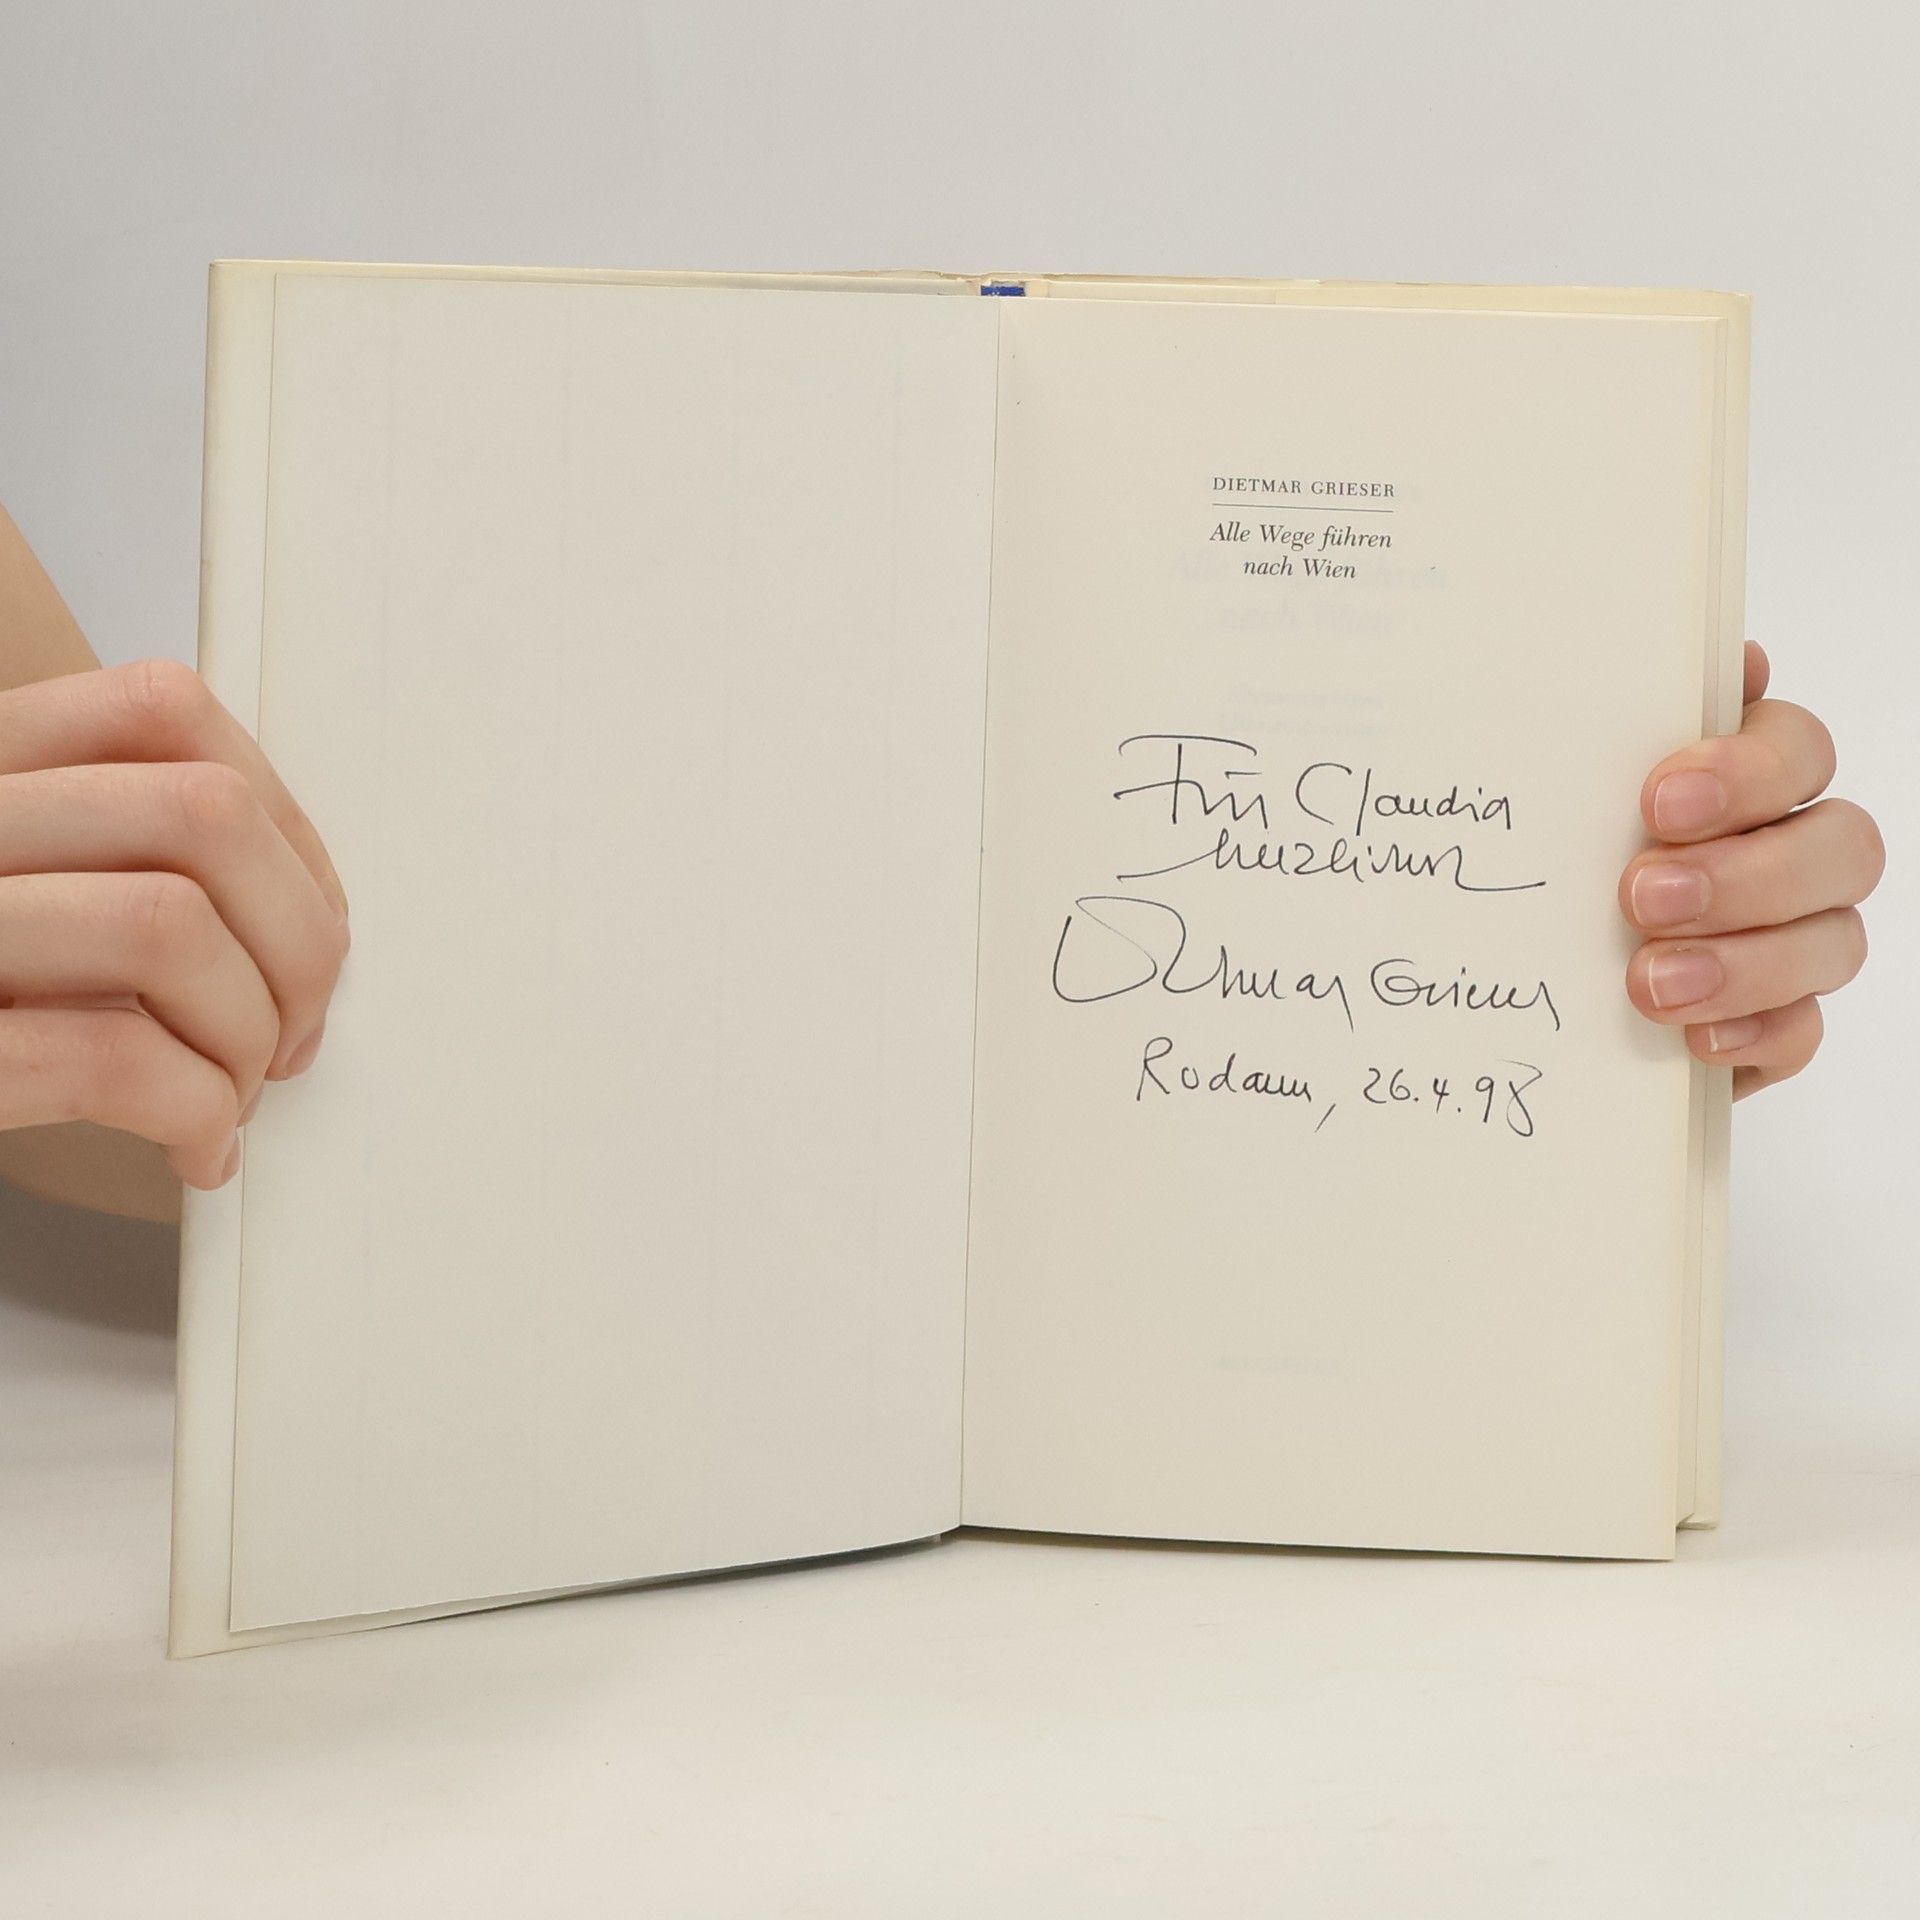 DIETMAR GRIESER
Alle Wege führen
nach Wien
Für Claudia
herzlichst
Dietmar Grieser
Rodaun, 26.4.98